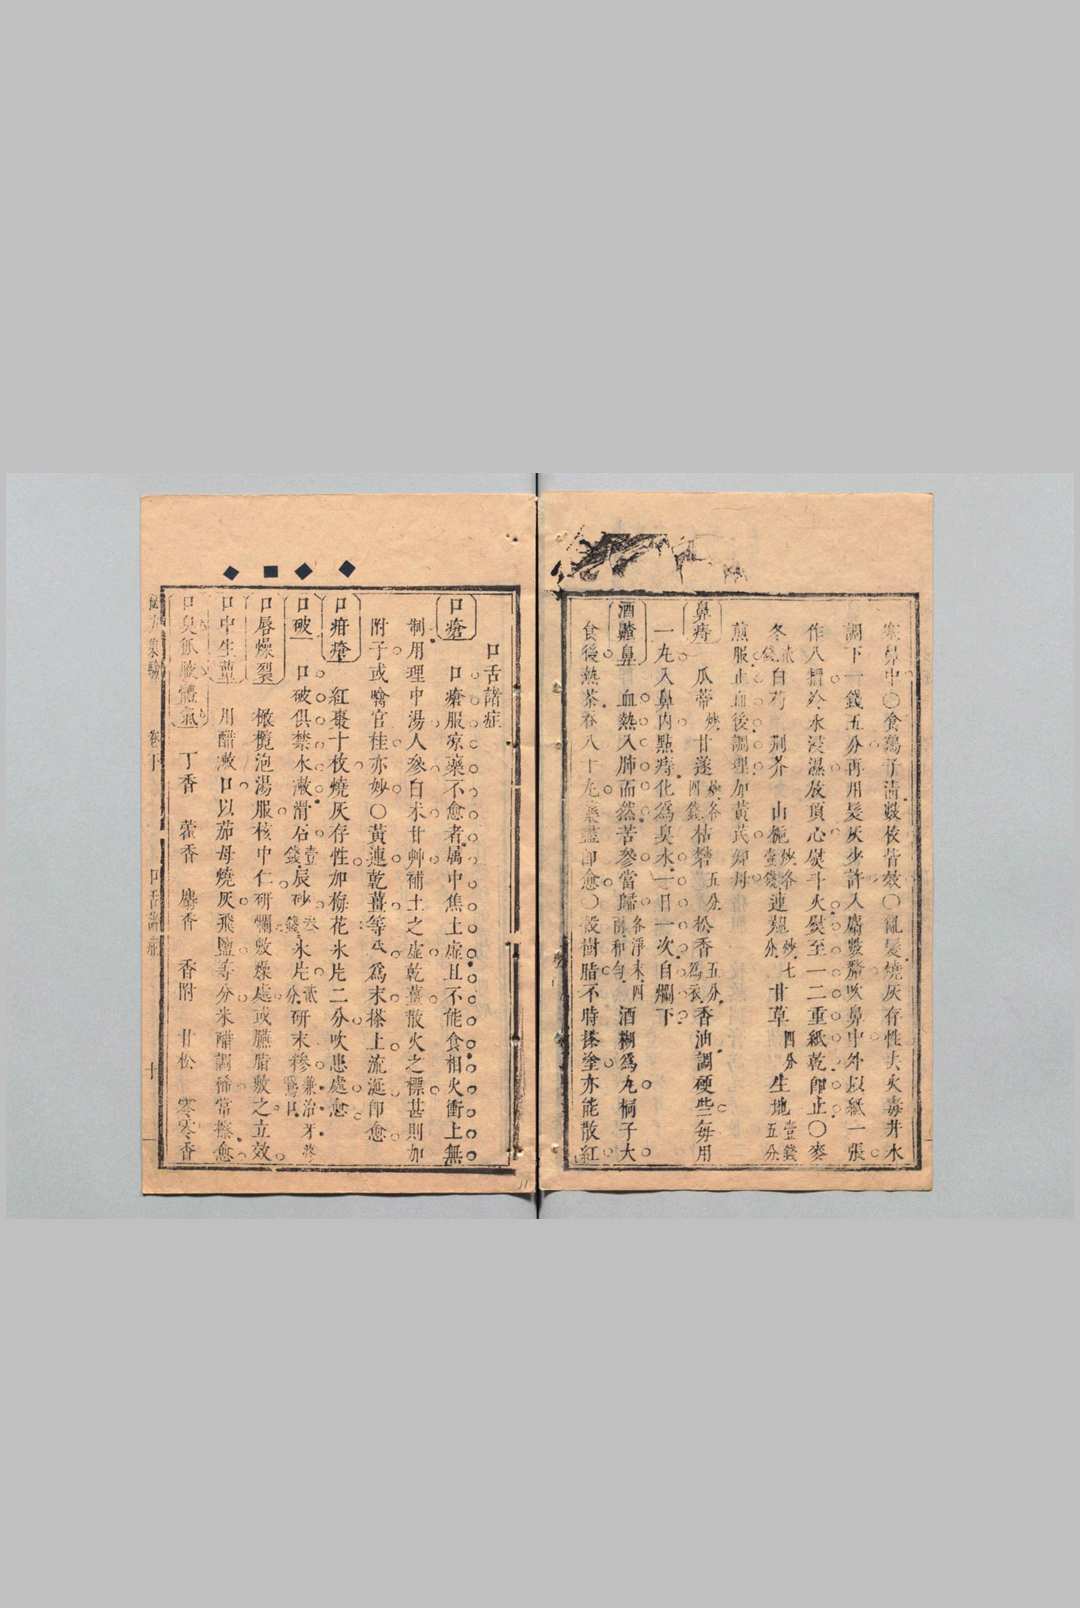 塞鼻中〇食鷄子清數枚皆效〇亂髮燒灰存性去火毒井水
調下一錢五分再用髮灰少許人麝發臍吹鼻中外以紙一張
作八摺冷水浸濕放頂心熨斗火熨至一二重紙乾卽止〇麥
冬 貳錢 白芍 荆芥 山梔 炒各壹錢 連翹 炒七分 甘草 四分 生地 壹錢五分
煎服止血後調理加黃芪知母
鼻痔 瓜蒂 炒 甘遂 炒各四錢 枯礬 五分 松香 五分爲衣 香油調硬些每用
一丸入鼻內點痔化爲臭水一日一次自爛下
酒齄鼻 血熱入肺而然苦參當歸 各淨末四兩和勻 酒糊爲丸桐子大
食後熱茶吞八十丸藥盡卽愈〇殼樹脂不時搽塗亦能散紅
口舌諸症
口瘡 口瘡服凉藥不愈者属中焦土虛且不能食相火衝上無
制用理中湯人參白朮甘艸補土之虛乾薑散火之標甚則加
附子或噙官桂亦妙〇黃連乾薑等分爲末搽上流涎卽愈
口疳瘡 紅棗十枚燒灰存性加梅花氷片二分吹患處愈
口破 口破俱禁水漱滑石 壹錢 辰砂 叁錢 氷片 貳分 研末糝 兼治牙疼
口唇燥裂 橄欖泡湯服核中仁研爛敷燥處或臙脂敷之立效
口中生蕈 用醋漱口以茄母燒灰飛鹽等分米醋調稀常擦愈
口臭 丁香 藿香 麝香 香附 甘松 零零香
卷下 口舌諸症 十